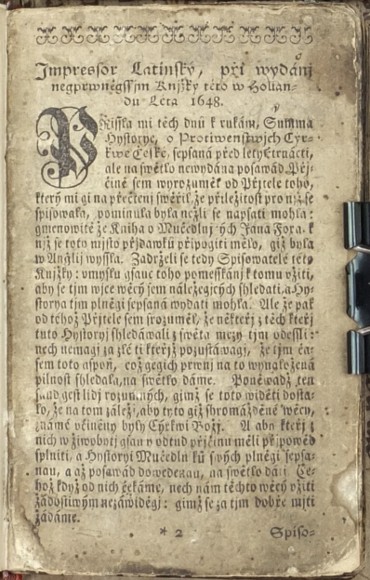 Impressor Latinský, při wydánj
neyprwněgssým Knjžky této w Hollan-
du Léta 1648.
PRissla mi těch dnů k rukám, Summa
Hystorye, o Protiwenstwjch Cýr-
kwe České, sepsaná před lety čtrnácti,
ale na swětlo newydána posawád. Přj-
čině sem wyrozuměl od Přjtele toho,
který mi gi na přečtenj swěřil, že přjležitost pro njž se
spisowala, pominula byla nežli se napsati mohla:
gmenowitě že Kniha o Mučedlnjcých Jána Foxa, k
njž se toto mjsto přjdawků připogiti mělo, giž byla
w Anglij wyssla. Zadrželi se tedy Spisowatelé této
Knjžky: vmyslu gsauce toho pomesskánj k tomu vžiti,
aby se tjm wjce wěcý sem náležegjcých shledati, a Hy-
storya tjm plněgi sepsaná wydati mohla. Ale že pak
od téhož Přjtele sem srozuměl, že někteřj z těch kteřj
tuto Hystoryi shledáwali z swěta mezy tjm odessli:
nech nemagj za zlé ti kteřjž pozustáwagj, že tjm ča-
sem toto aspoň, což gegich prwnj na to wynaložená
pilnost shledala, na swětlo dáme. Poněwadž ten
saud gest lidj rozumných, gimž se toto widěti dosta-
lo, že na tom záležj, aby tyto giž shromážděné wěcy,
známé včiněny byly Cýrkwi Božj. A aby kteřj z
nich w žiwobytj gsau y odtud přjčinu měli přjpowěd
splniti, a Hystoryi Mučedlnjků swých plněgi sepsa-
nau, a až posawád dowedenau, na swětlo dáti. Če-
hož když od nich čekáme, nech nám těchto wěcý vžiti
žádostiwým nezáwiděgj: gimž se za tjm dobře mjti
žádáme.
* 2 Spiso-